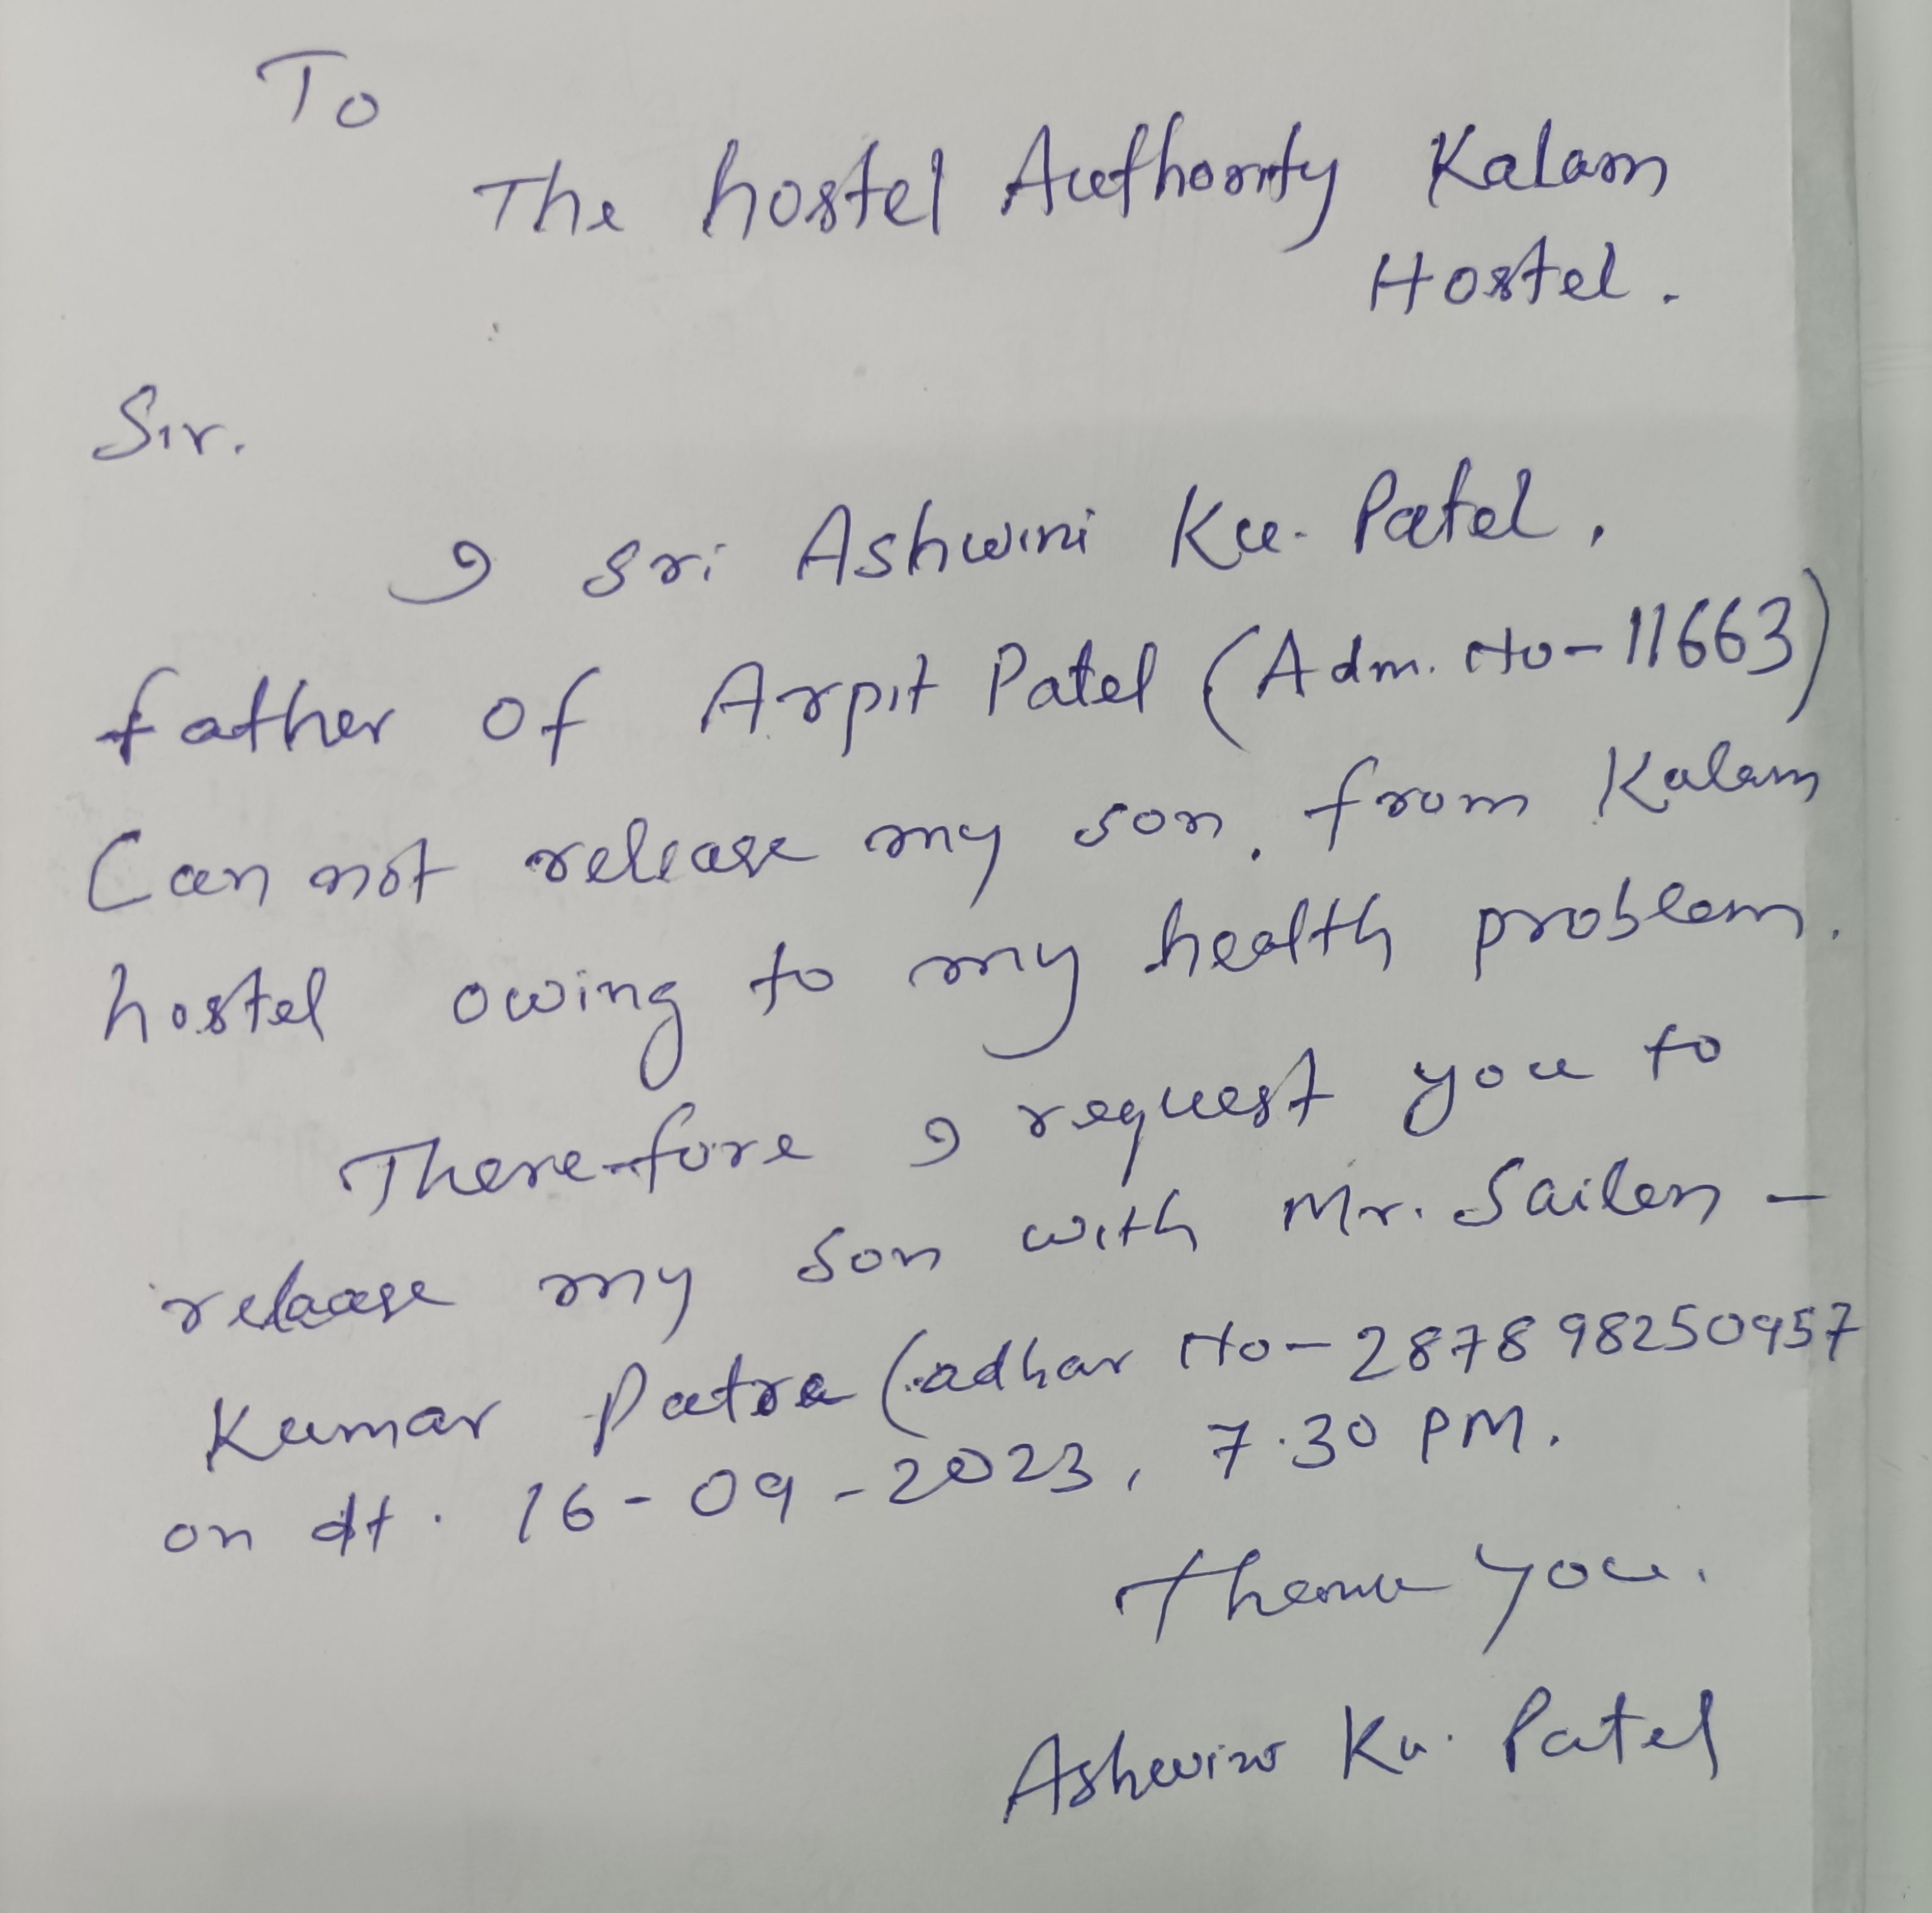 To
The hostel Authority Kalam
Hostel.
Sir.
I sri Ashwini Ku. Patel,
father of Arpit Patel (Adm. No-11663)
Can not release my son, from Kalam
hostel owing to my health problem.
Therefore I request you to
release my son with Mr. Sailen -
Kumar Patra (adhar No- 2878 98250957
on dt. 16-09-2023, 7.30 PM.
Thank you.
Ashwini Ku. Patel